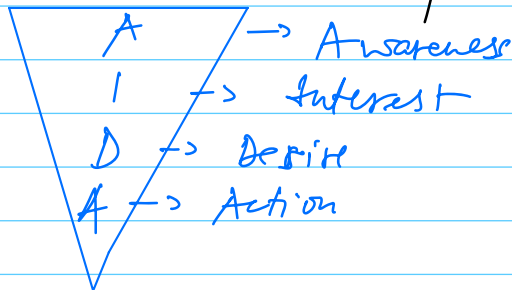 A → Awareness
I → Interest
D → Desire
A → Action